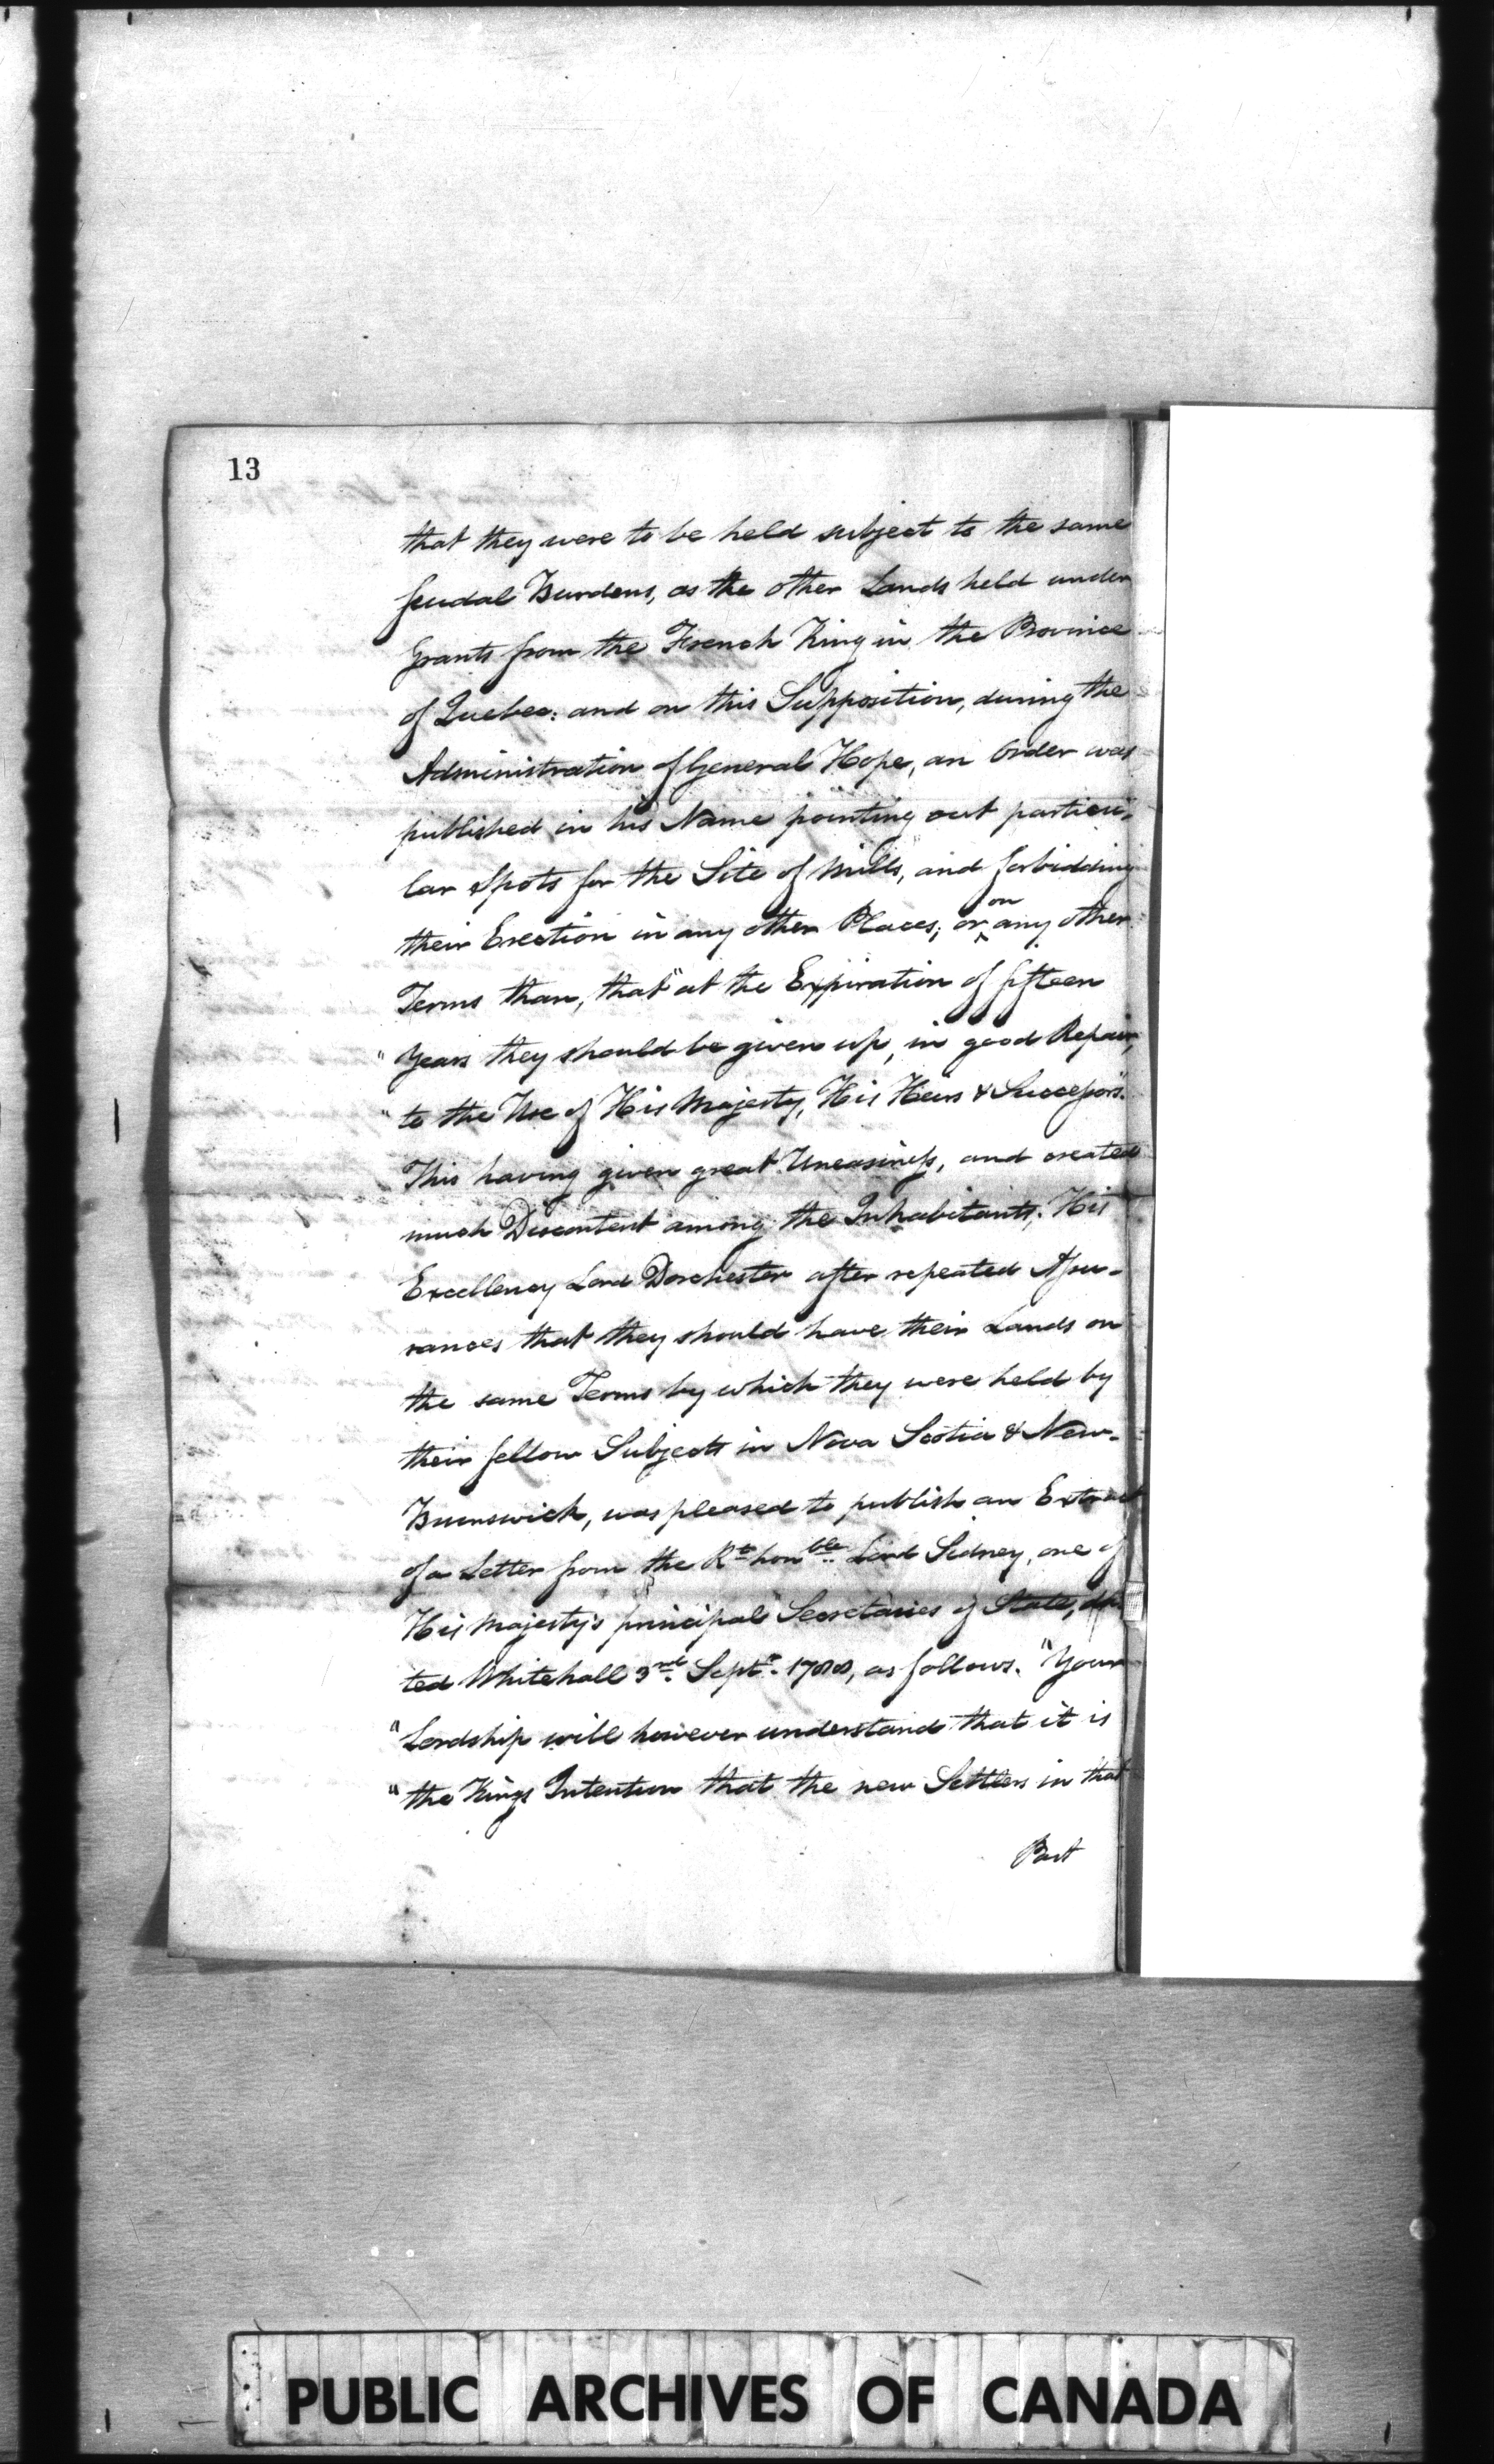 13
that they were to be held subject to the same
feudal Burdens, as the other Lands held under
Grants from the French King in the Province
of Quebec: and on this Supposition, during the
Administration of General Hope, an Order was
published in his Name pointing out particu-
lar Spots for the Site of Mills, and forbidding
their Erection in any other Places; or on any other
Terms than, that "at the Expiration of fifteen
" Years they should be given up, in good Repair,
" to the Use of His Majesty, His Heirs & Successors."
This having given great Uneasiness, and created
much Discontent among the Inhabitants; His
Excellency Lord Dorchester after repeated Assu-
rances that they should have their Lands on
the same Terms by which they were held by
their fellow Subjects in Nova Scotia & New-
Brunswick, was pleased to publish an Extract
of a Letter from the Rt. honble. Lord Sidney, one of
His Majesty's principal Secretaries of State, da
ted Whitehall 3rd. Septr. 1788, as follows. "Your
"Lordship will however understand that it is
"the Kings Intention that the new Settlers in that
Part
PUBLIC ARCHIVES OF CANADA